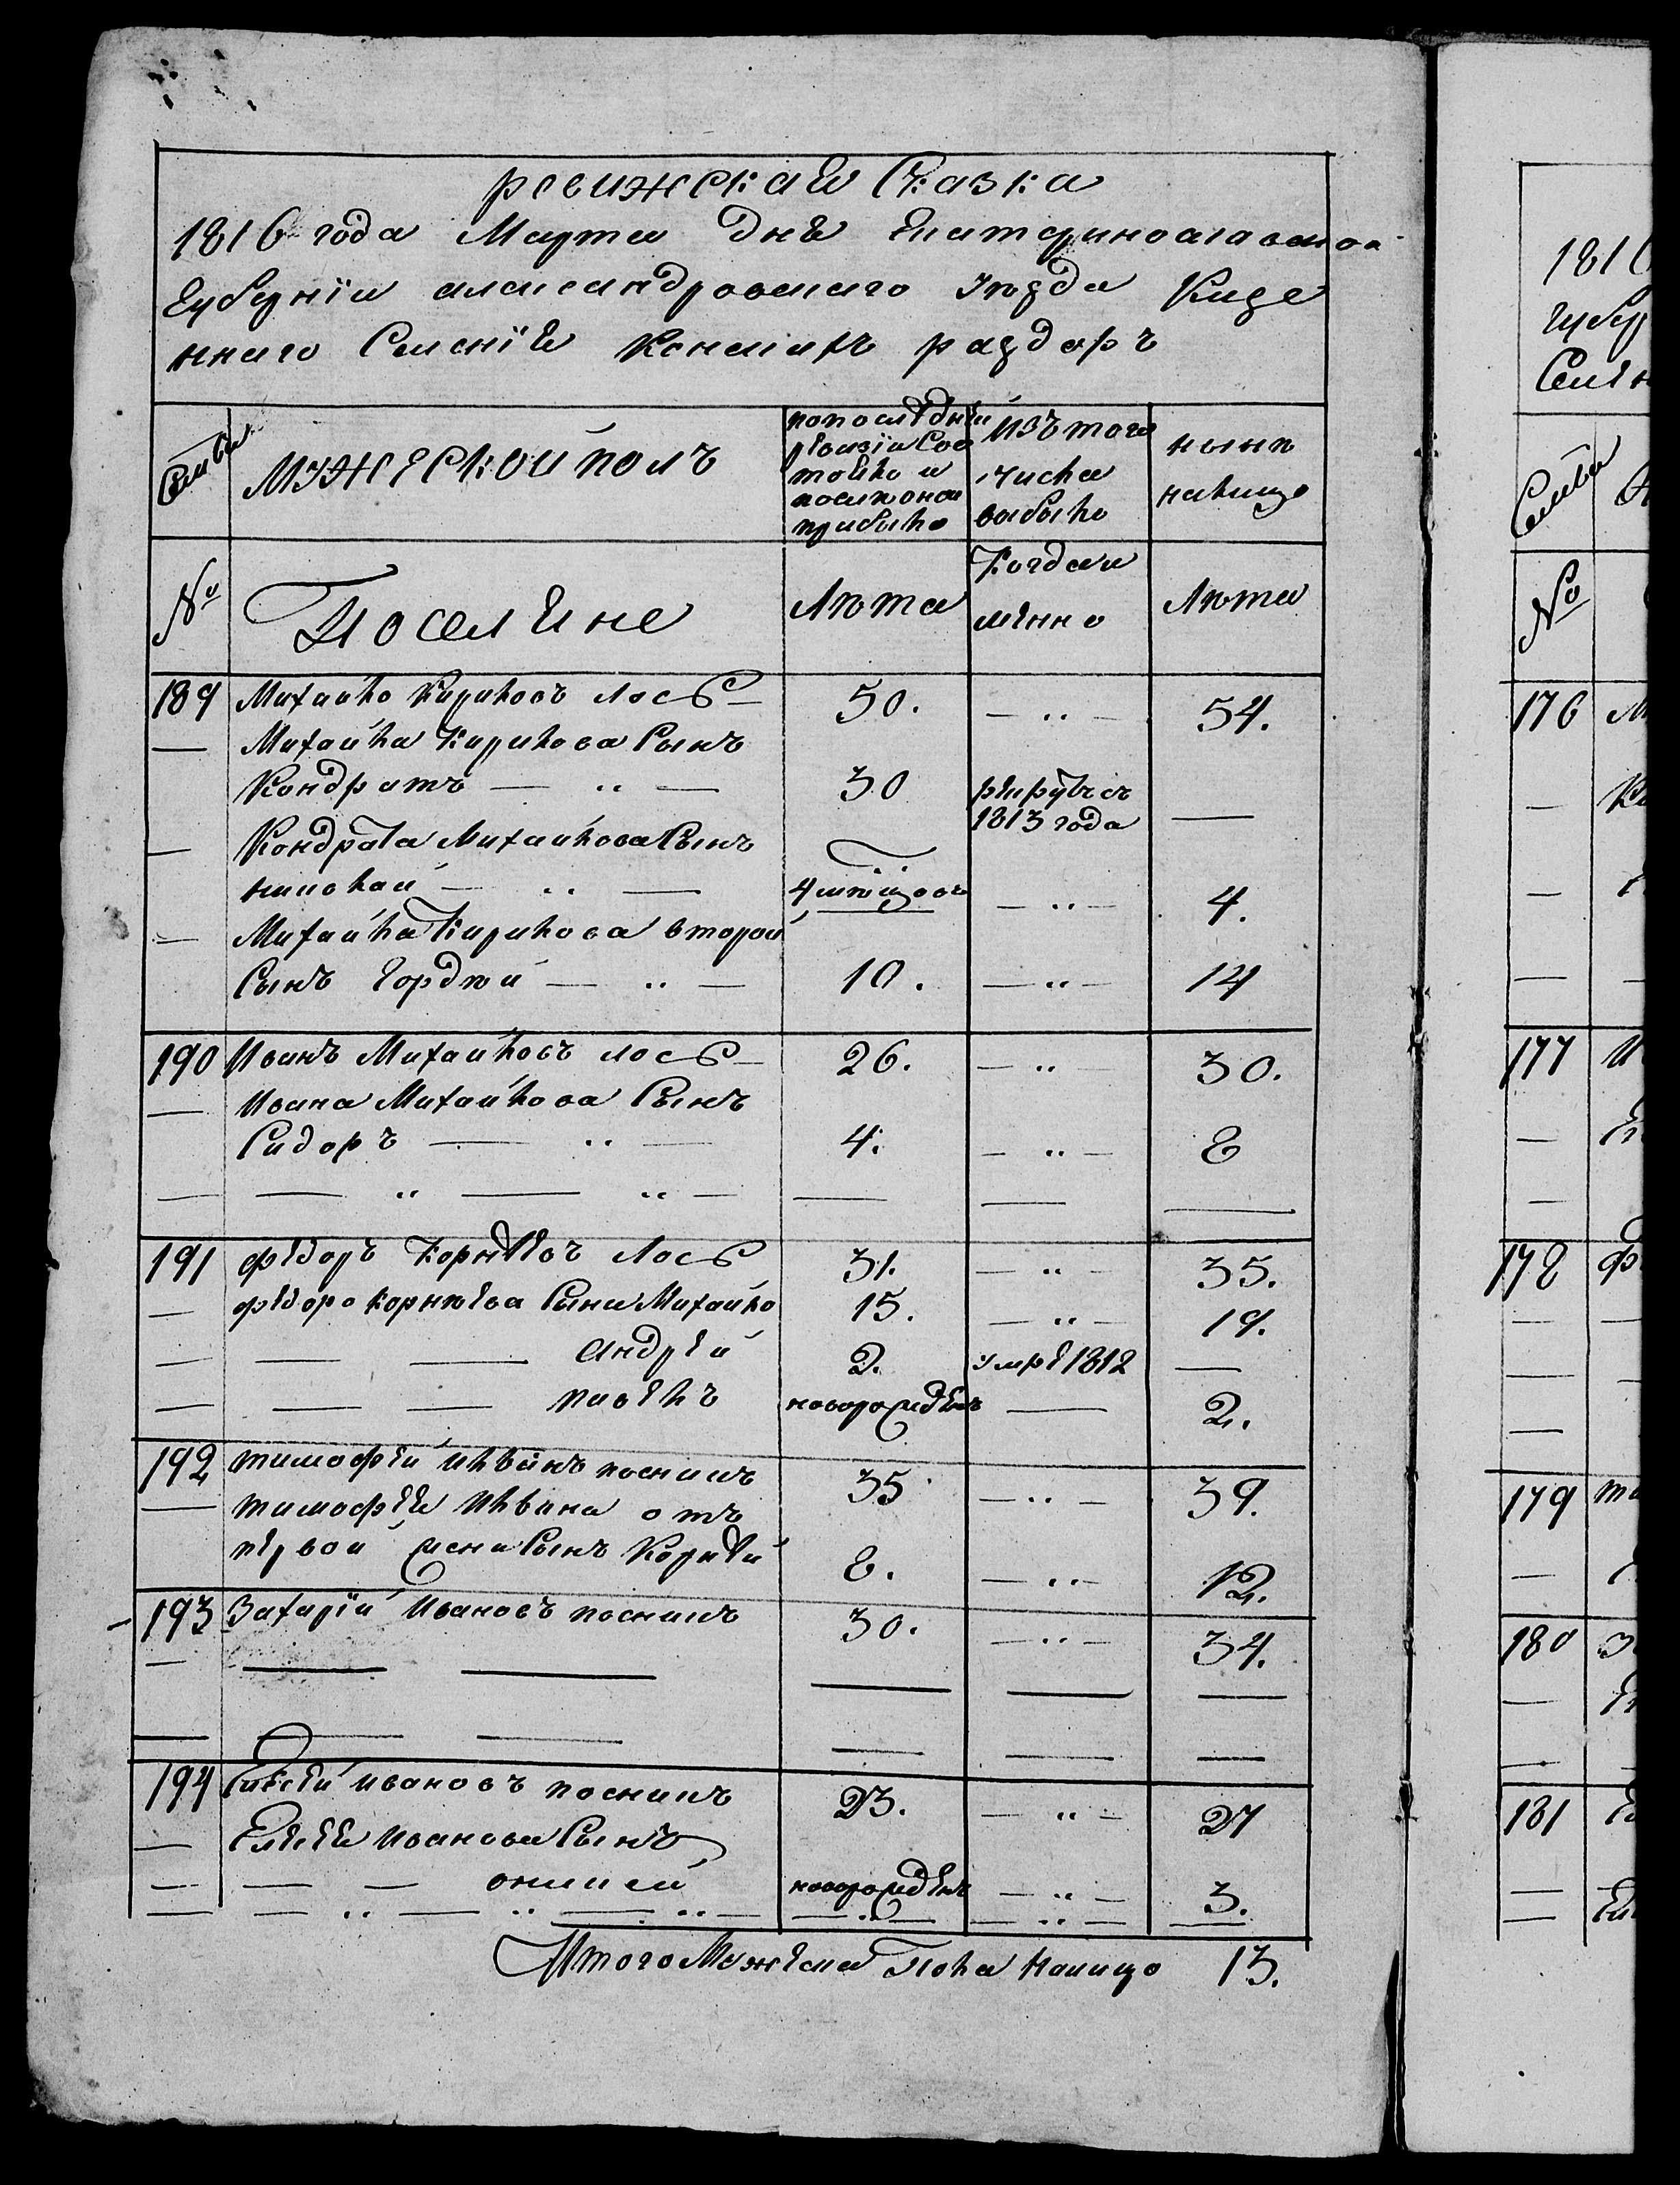 ревижская Сказка
1816 года Марта дня Екатеринославской
Губернїи александровскаго уезда Казе
ннаго Селенїя Конскихъ раздоръ
Семьи
мужеской полъ
по последней
ревизїи Сос
тояло и
после оной
прибыло
изъ того
числа
выбыло
ныне
налицо
№
Поселяне
Лета
Когда и
мѣнно
Лета
189 Михайло Кириловъ Лось 50. 54.
Михайла Кирилова Сынъ
Кондратъ 30 рекрутъ съ
1813 года
Кондрата Михайлова Сынъ
николай 4 месяцовъ 4.
Михайла Кирилова второй
Сынъ Гордей 10. 14
190 Иванъ Михайловъ Лось 26. 30.
Ивана Михайлова Сынъ
Сидоръ 4. 8
191 федоръ Корнѣевъ Лось 31. 35.
федора корнеева Сыни Михайло 15. 19.
андрей 2. умре 1812
павелъ новорожденъ 2.
192 тимофей ильинъ поснихъ 35 39.
тимофея ильина отъ
первой жени Сынъ Корнѣй 8. 12.
193 Захарїй Ивановъ поснихъ 30. 34.
194 Елисей ивановъ поснихъ 23. 27
Елисея иванова Сынъ
онисей новорожденъ 3.
Итого Мужеска Пола Налицо 13.
181
губер
Селен
Семьи
№
176 М
177 И
178 ф
179 ти
180 З
181 Ел